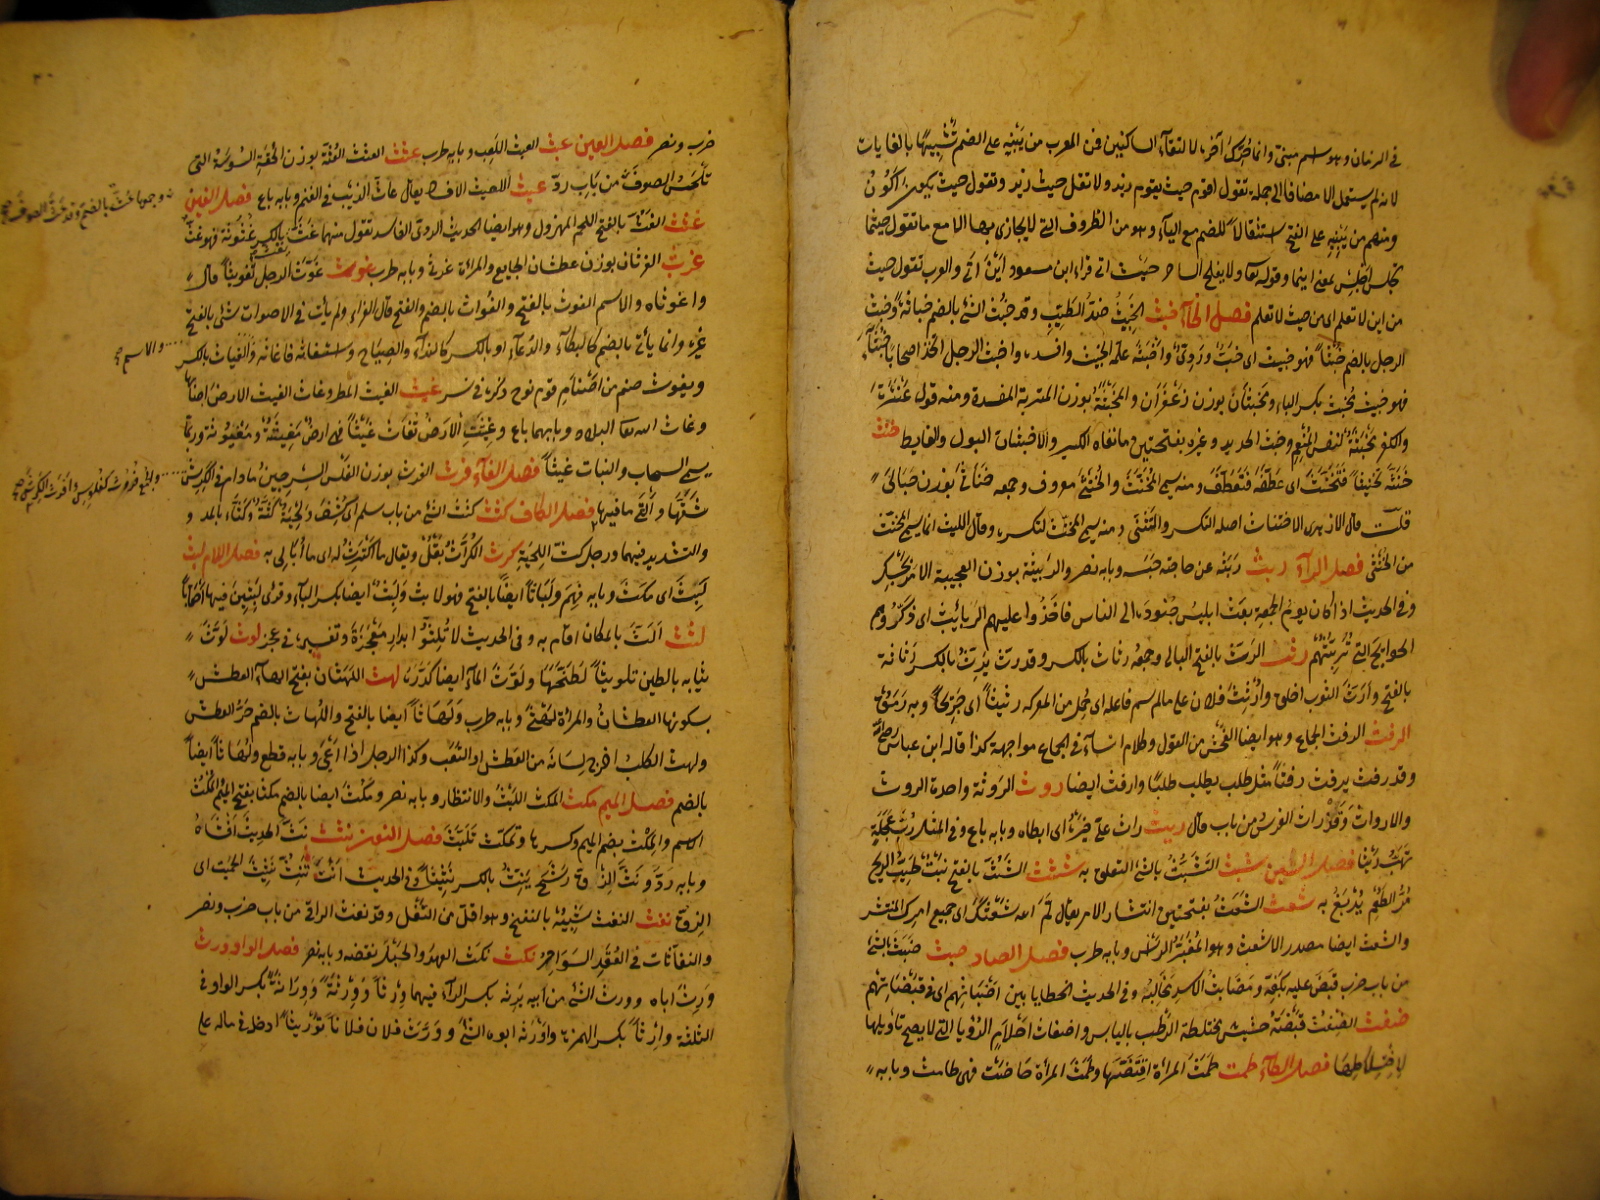 في الزمان وهو اسم مبنى وانما حرك آخره لالتقاء الساكنين فمن العرب من يبنيه على الضم تشبيها بالغايات
لانه لم يستعمل الا مضافا الى جملة تقول اقوم حيث يقوم زيد ولا تقل حيث زيد وتقول حيث يكون اكون
ومنهم من يبنيه على الفتح استثقالا للضم مع الياء وهو من الظروف التي لا يجازى بها الا مع ما تقول حيثما
تجلس اجلس بمعنى اينما وقوله تعا ولا يفلح الساحر حيث اتى قراءة ابن مسعود اين اتى والعرب تقول حيث
من اين لا تعلم اى من حيث لا تعلم فصل الخاء خبث الخبيث ضد الطيب وقد خبث الشئ بالضم خباثة وخبث
الرجل بالضم خبثا فهو خبيث اى خب ردى واخبثه علمه الخبث وافسده واخبث الرجل اتخذ اصحابا خبثاء
فهو خبيث مخبث بكسر الباء ومخبثان بوزن زعفران والمخبثة بوزن المتربة المفسدة ومنه قول عنترة
والكفر مخبثة لنفس المنعم وخبث الحديد وغيره بفتحتين ما نفاه الكير والاخبثان البول والغايط خنث
خنثه تخنيثا فتخنث اى عطفه فتعطف ومنه سمي المخنث والخنثى معروف وجمعه خناثى بوزن حبالى
قلت قال الازهرى الاختناث اصله التكسر والتثنى ومنه سمي المخنث لتكسره وقال الليث انما سمي المخنث
من الخنثى فصل الراء ربث ربثه عن حاجته حبسه وبابه نصر والربيثة بوزن العجيبة الامر يحبسك
وفي الحديث اذا كان يوم الجمعة بعث ابليس جنوده الى الناس فاخذوا عليهم الربائث اى ذكروهم
الحوايج التي تربثهم رثث الرث بالفتح البالى وجمعه رثاث بالكسر وقد رث يرث بالكسر رثاثة
بالفتح وارث الثوب اخلق وارتث فلان على ما لم يسم فاعله اى حمل من المعركة رثيثا اى جريحا وبه رمق
الرفث الرفث الجماع وهو ايضا الفحش من القول وكلام النساء في الجماع مواجهة كذا قاله ابن عباس
وقد رفث يرفث رفثا مثل طلب يطلب طلبا وارفث ايضا روث الروثة واحدة الروث
والارواث وقد راث الفرس من باب قال ريث راث على خبره اى ابطاه وبابه باع وفي المثل رب عجلة
تهب ريثا فصل الشين شبث التشبث بالشئ التعلق به شثث الشث بالفتح نبت طيب الريح
مر الطعم يدبغ به شعث الشعث بفتحتين انتشار الامر يقال لم الله شعثك اى جمع امرك المنتشر
والشعث ايضا مصدر الاشعث وهو المغبر الراس وبابه طرب فصل الضاد ضبث ضبث بالشئ
من باب ضرب قبض عليه بكفه ومضابث الاسد مخالبه وفي الحديث الخطايا بين اضباثهم اى في قبضاتهم
ضغث الضغث قبضة حشيش مختلطة الرطب باليابس واضغاث احلام الرؤيا التي لا يصح تاويلها
لاختلاطها فصل الطاء طمث طمث المراة افتضها وطمثت المراة حاضت فهى طامث وبابه
ضرب ونصر فصل العين عبث العبث اللعب وبابه طرب عثث العث العثة بوزن الحقة السوسة التي
تلحس الصوف من باب رد عيث العيث الافساد يقال عاث الذيب في الغنم وبابه باع فصل الغين
غثث الغث بالفتح اللحم المهزول وهو ايضا الحديث الردى الفاسد تقول منهما غث يغث بالكسر غثوثة فهو غث
غرث الغرثان بوزن عطشان الجايع والمراة غرثى وبابه طرب غوث غوث الرجل تغويثا قال
واغوثاه والاسم الغوث بالفتح والغواث بالضم والفتح قال الفراء ولم يأت في الاصوات شئ بالفتح
غيره وانما يأتى بالضم كالبكاء والدعاء او بالكسر كالنداء والصياح واستغاثه فاغاثه والغياث بالكسر
ويغوث صنم من اصنام قوم نوح وذكره في نسر غيث الغيث المطر وغاث الغيث الارض اصابها
وغاث الله تعا البلاد وبابهما باع وغيثت الارض تغاث غيثا فهى ارض مغيثة ومغيوثة وربما
سمي السحاب والنبات غيثا فصل الفاء فرث الفرث بوزن الفلس السرجين ما دام في الكرش
شقها والقى ما فيها فصل الكاف كثث كث الشئ من باب سلم اى كثف ولحية كثة وكثاء بالمد و
والتشديد فيهما ورجل كث اللحية كرث الكراث بقل ويقال ما اكترث له اى ما ابالى به فصل اللام لبث
لبث اى مكث وبابه فهم ولباثا ايضا بالفتح فهو لابث ولبث ايضا بكسر الباء وقرئ لبثين فيها احقابا
لثث الث بالمكان اقام به وفي الحديث لا تلثوا بدار معجزة وتفسيره في عجز لوث لوث
ثيابه بالطين تلويثا لطخها ولوث الماء ايضا كدره لهث اللهثان بفتح الهاء العطش
بسكونها العطشان والمراة لهثى وبابه طرب ولهاثا ايضا بالفتح واللهاث بالضم حر العطش
ولهث الكلب اخرج لسانه من العطش او التعب وكذا الرجل اذا اعيى وبابه قطع ولهاثا ايضا
بالضم فصل الميم مكث المكث اللبث والانتظار وبابه نصر ومكث ايضا بالضم مكثا بفتح الميم والمكث
الاسم والمكث بضم الميم وكسرها وتمكث تلبث فصل النون نثث نث الحديث افشاه
وبابه رد ونث الزق رشح ينث بالكسر نثيثا وفي الحديث انت تنث نثيث الحميت اى
الزق نفث النفث شبيه بالنفخ وهو اقل من التفل وقد نفث الراقى من باب ضرب ونصر
والنفاثات في العقد السواحر نكث نكث العهد والحبل نقضه وبابه نصر فصل الواو ورث
ورث اباه وورث الشئ من ابيه يرثه بكسر الراء فيهما ورثا وورثة ووراثة بكسر الواو في
الثلثة وارثا بكسر الهمزة واورثه ابوه الشئ وورث فلان فلانا توريثا ادخله في ماله على
وجمعها عث بالضم وقد عث الصوف صح
والاسم صح
والجمع فروث كفلوس وافرث الكرش صح